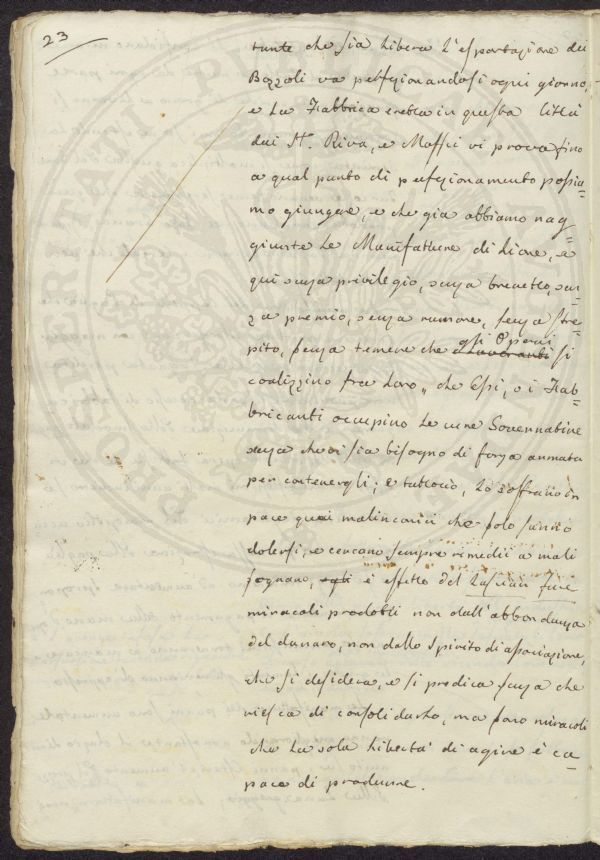 23
tante che sia libera l'esportazione dei
Bozzoli va perfezionandosi ogni giorno,
e la Fabbrica eretta in questa Città
dai Sr. Riva, e Maffei vi prova fino
a qual punto di perfezionamento possia=
mo giungere, e che già abbiamo rag=
giunte le Manifatture di Lione, e
qui senza privilegio, senza brevetto, sen=
za premio, senza rumore, senza stre=
pito, senza temere che gli Operai si
coalizzino fra loro, che Essi, o i Fab=
bricanti occupino le cure Governative
senza che vi sia bisogno di forza armata
per contenergli; e tuttociò, lo soffrano in
pace quei malinconici che solo sanno
dolersi, e cercano sempre rimedii a mali
sognano, è effetto del lasciar fare
miracoli prodotti non dall'abbondanza
del danaro, non dallo spirito di associazione,
che si desidera, e si predica senza che
riesca di consolidarlo, ma sono miracoli
che la sola libertà di agire è ca=
pace di produrre.
PROSPERITATI PUBLICAE